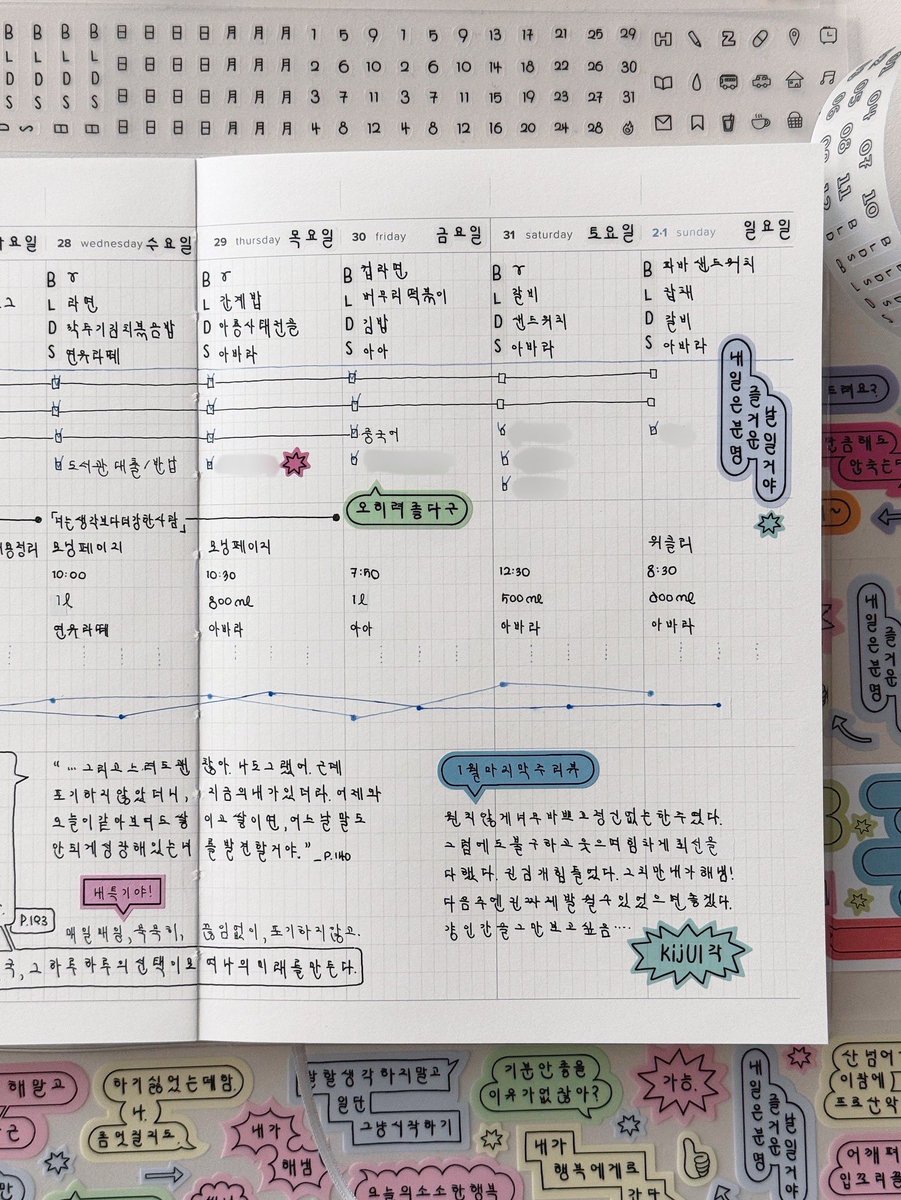 B B B B 日 日 日 日 月 月 月 1 5 9 1 5 9 13 17 21 25 29
L L L L 日 日 日 日 月 月 月 2 6 10 2 6 10 14 18 22 26 30
D D D D 日 日 日 日 月 月 月 3 7 11 3 7 11 15 19 23 27 31
S S S S 日 日 日 日 月 月 月 4 8 12 4 8 12 16 20 24 28
04 07 10
05 08 11
요일
28 wednesday 수요일
B r
L 라면
D 깍두기김치볶음밥
S 연유라떼
도서관 대출/반납
「너는 생각보다 더 강한 사람」
내용정리
모닝페이지
10:00
1l
연유라떼
29 thursday 목요일
B r
L 간계밥
D 아롱사태전골
S 아바라
모닝페이지
10:30
800ml
아바라
30 friday 금요일
B 컵라면
L 버무리떡볶이
D 김밥
S 아아
중국어
오히려 좋다구
7:50
1l
아아
31 saturday 토요일
B r
L 갈비
D 샌드위치
S 아바라
12:30
500ml
아바라
2·1 sunday 일요일
B 파바 샌드위치
L 잡채
D 갈비
S 아바라
내일은 분명
즐거운
날일거야
위클리
8:30
800ml
아바라
포기하지 않았더니, 지금의 내가 있더라. 어제와
오늘이 같아보여도
이요 쌓이면, 어느 날 말도
안되게 성장해있는 너를 발견할거야." _P.140
내 특기야!
P.193
매일매일, 묵묵히, 끊임없이, 포기하지 않고.
국, 그 하루하루의 선택이
여나의 미래를 만든다.
1월 마지막주 리뷰
원치 않게 너무 바쁘고 정신없는 한 주였다.
그럼에도 불구하고 웃으며 힘차게 최선을
다했다. 진심 개힘들었다. 그치만 내가 해냄!
다음주엔 진짜 제발 쉴 수 있었으면 좋겠다.
걍 인간을 그만보고싶음…
KijUl 각
드려요?
만큼 해도
안 죽는다
내일은 분명
즐거운
해 말고
하기 싫었는데 함.
나.
좀 멋질지도.
내가
해냄
잘할 생각 하지말고
일단
그냥 시작하기
기분 안 좋을
이유가 없잖아?
가능.
내일은 분명
즐거운
날일거야
산 넘어
이참에
프로산악
오늘의 소소한 행복
내가
행복에게로
간다
어깨 펴
입꼬리